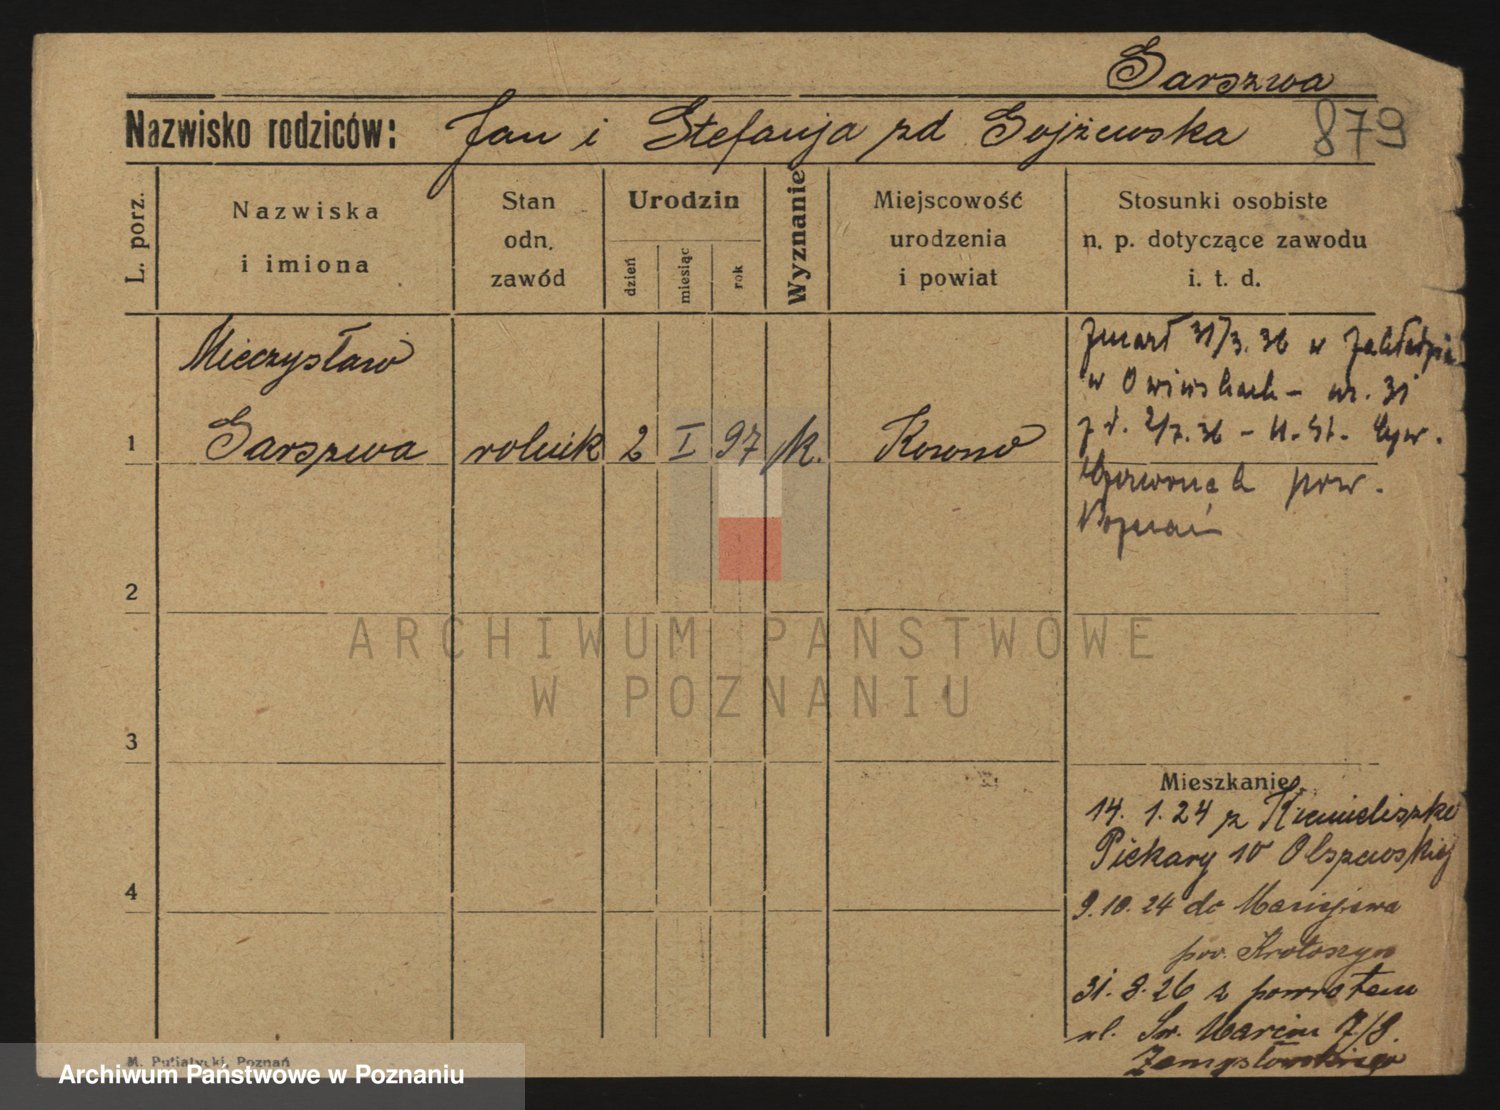 Garszwa
Nazwisko rodziców: Jan i Stefanja zd Gojżewska 879
L. porz.
Nazwiska
i imiona
Stan
odn.
zawód
Urodzin
dzień
miesiąc
rok
Wyznanie
Miejscowość
urodzenia
i powiat
Stosunki osobiste
n. p. dotyczące zawodu
i. t. d.
Mieczysław
1 Garszwa rolnik 2 I 97 k. Kowno
Zmarł 31/3. 36 w Zakładzie
w Owińskach – nr. 31
z d. 2/7. 36 – U. St. Cyw.
pow.
Poznań
2
3
4
Mieszkanie
14. 1. 24 z Kiemieliszke
Piekary 10 Olszewskiej
9. 10. 24 do
pow. Krotoszyn
31. 8. 26 z powrotem
ul. Św. Marcin 7/8.
Zamysłowskiego
ARCHIWUM PAŃSTWOWE
W POZNANIU
M. Putiatycki, Poznań
Archiwum Państwowe w Poznaniu